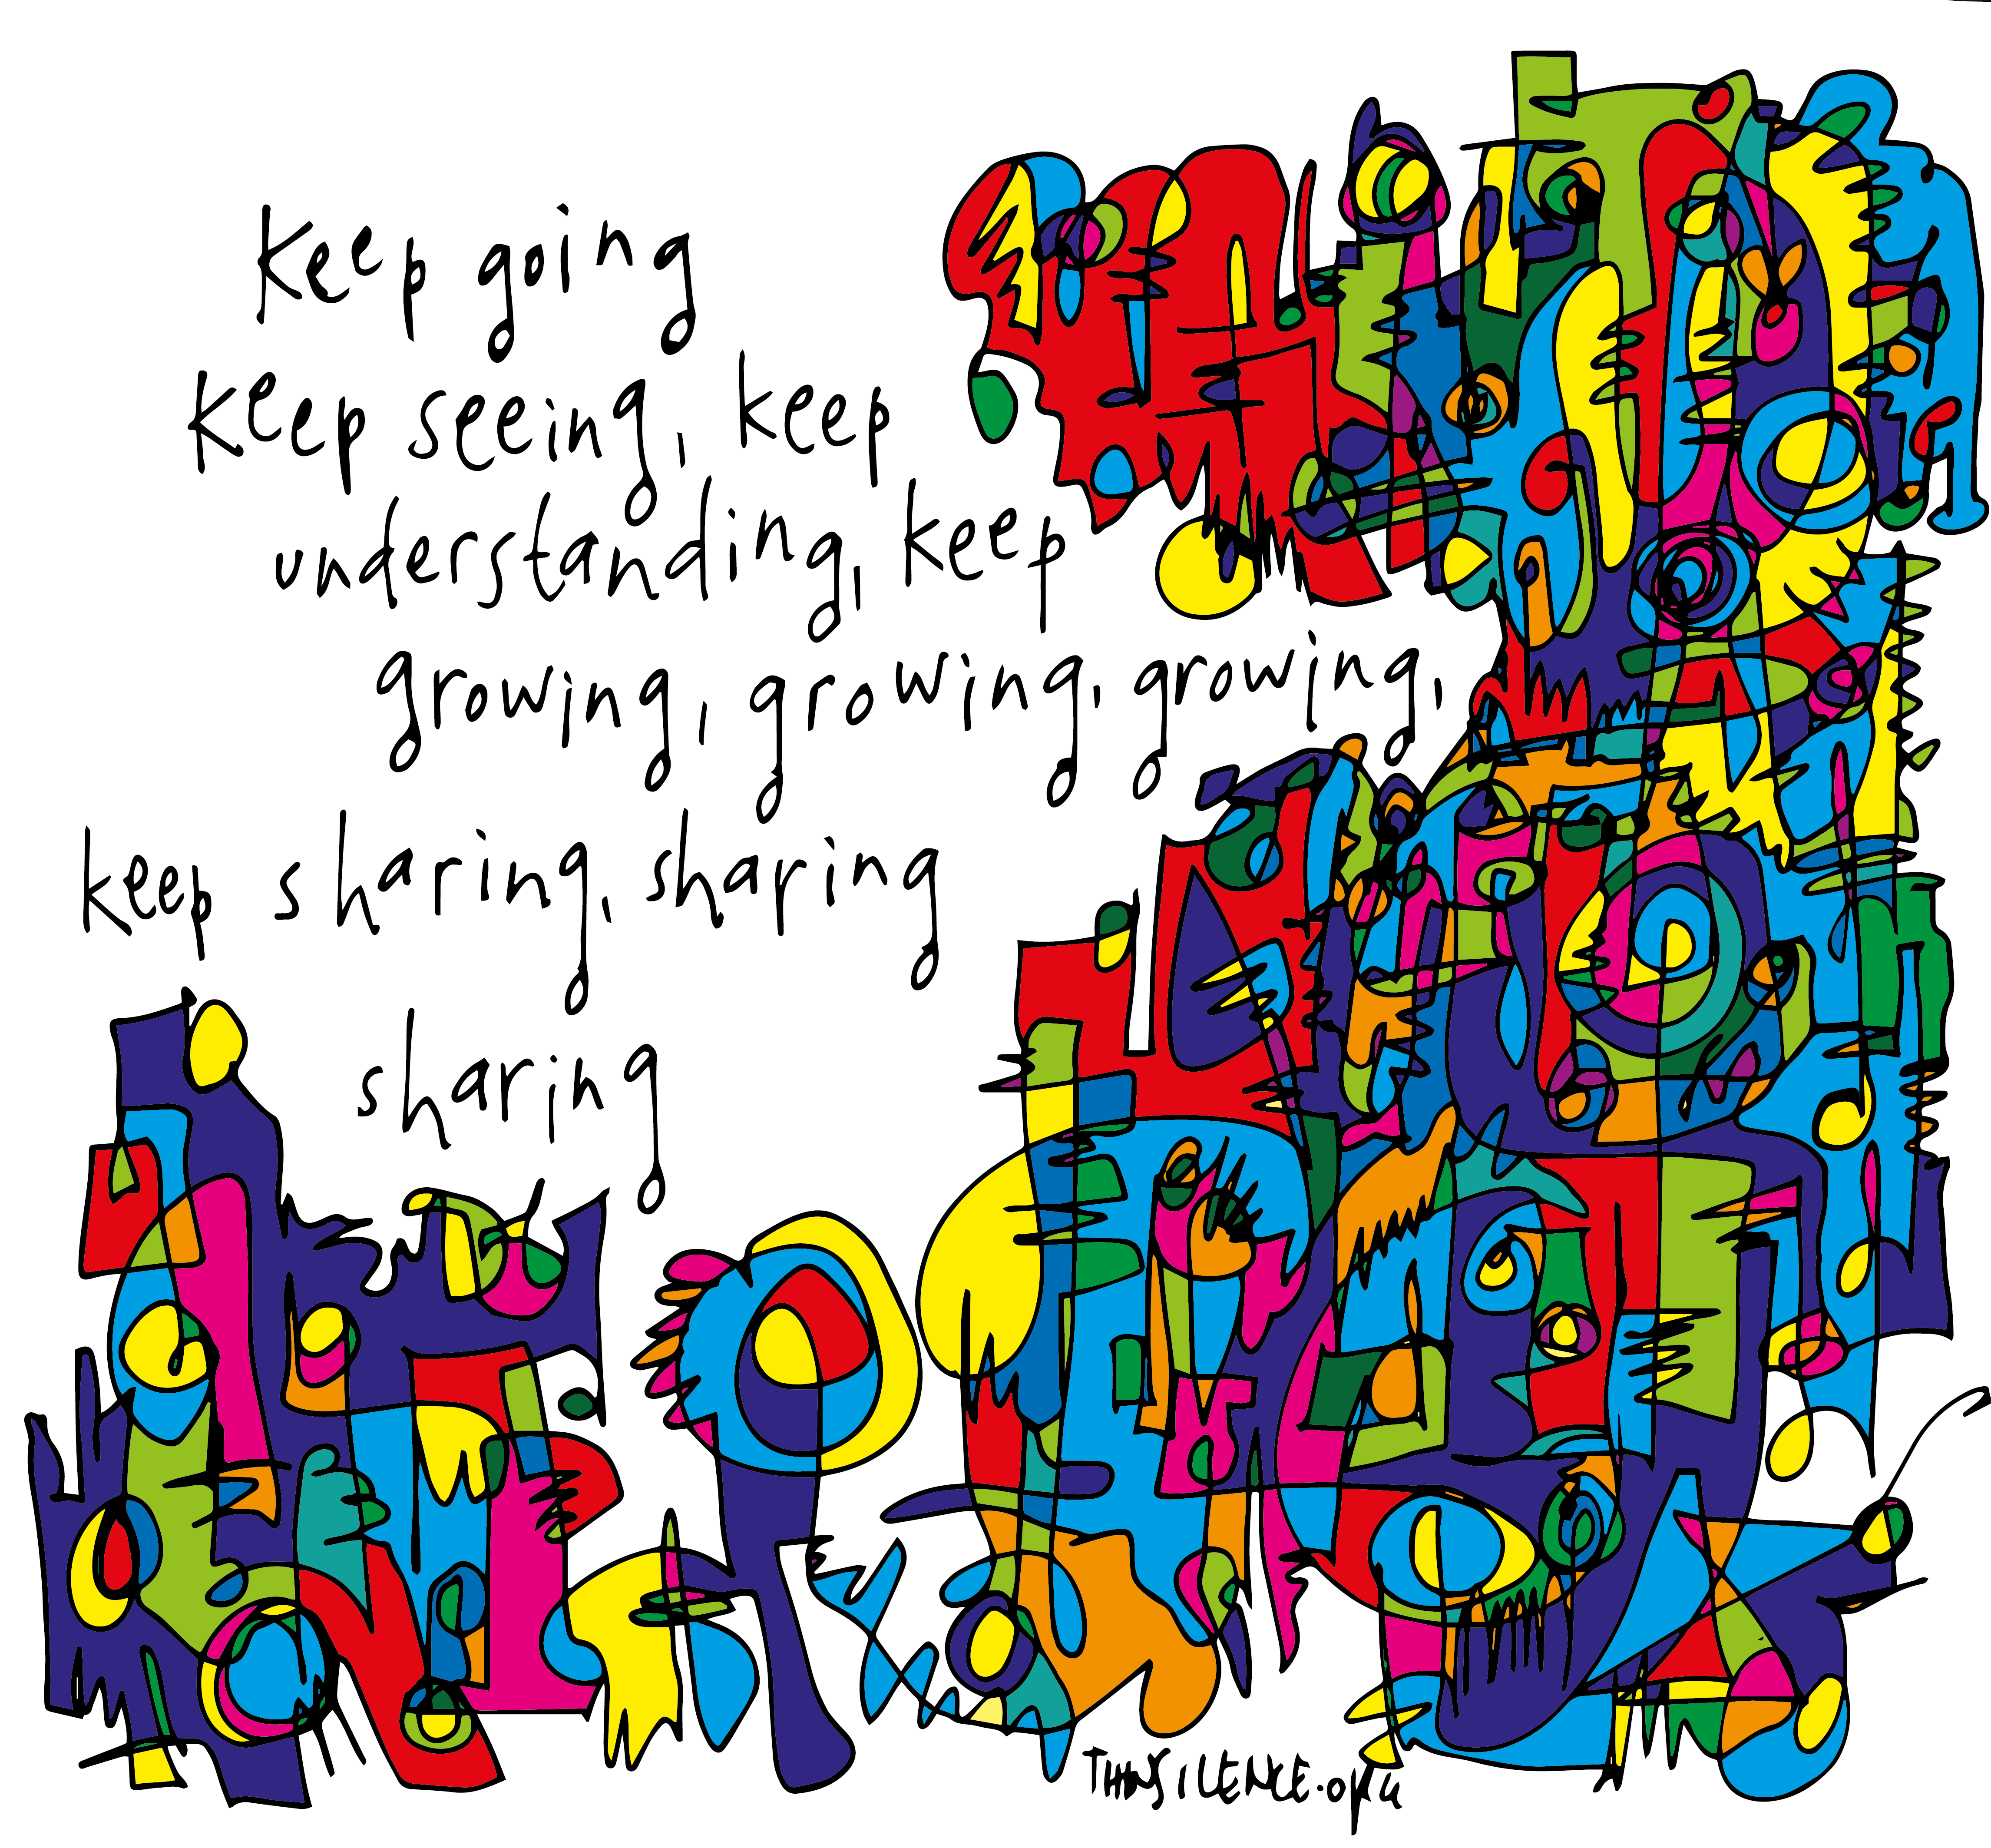 Keep going
Keep seeing, keep
understanding, keep
growing, growing, growing,
keep sharing, sharing
sharing